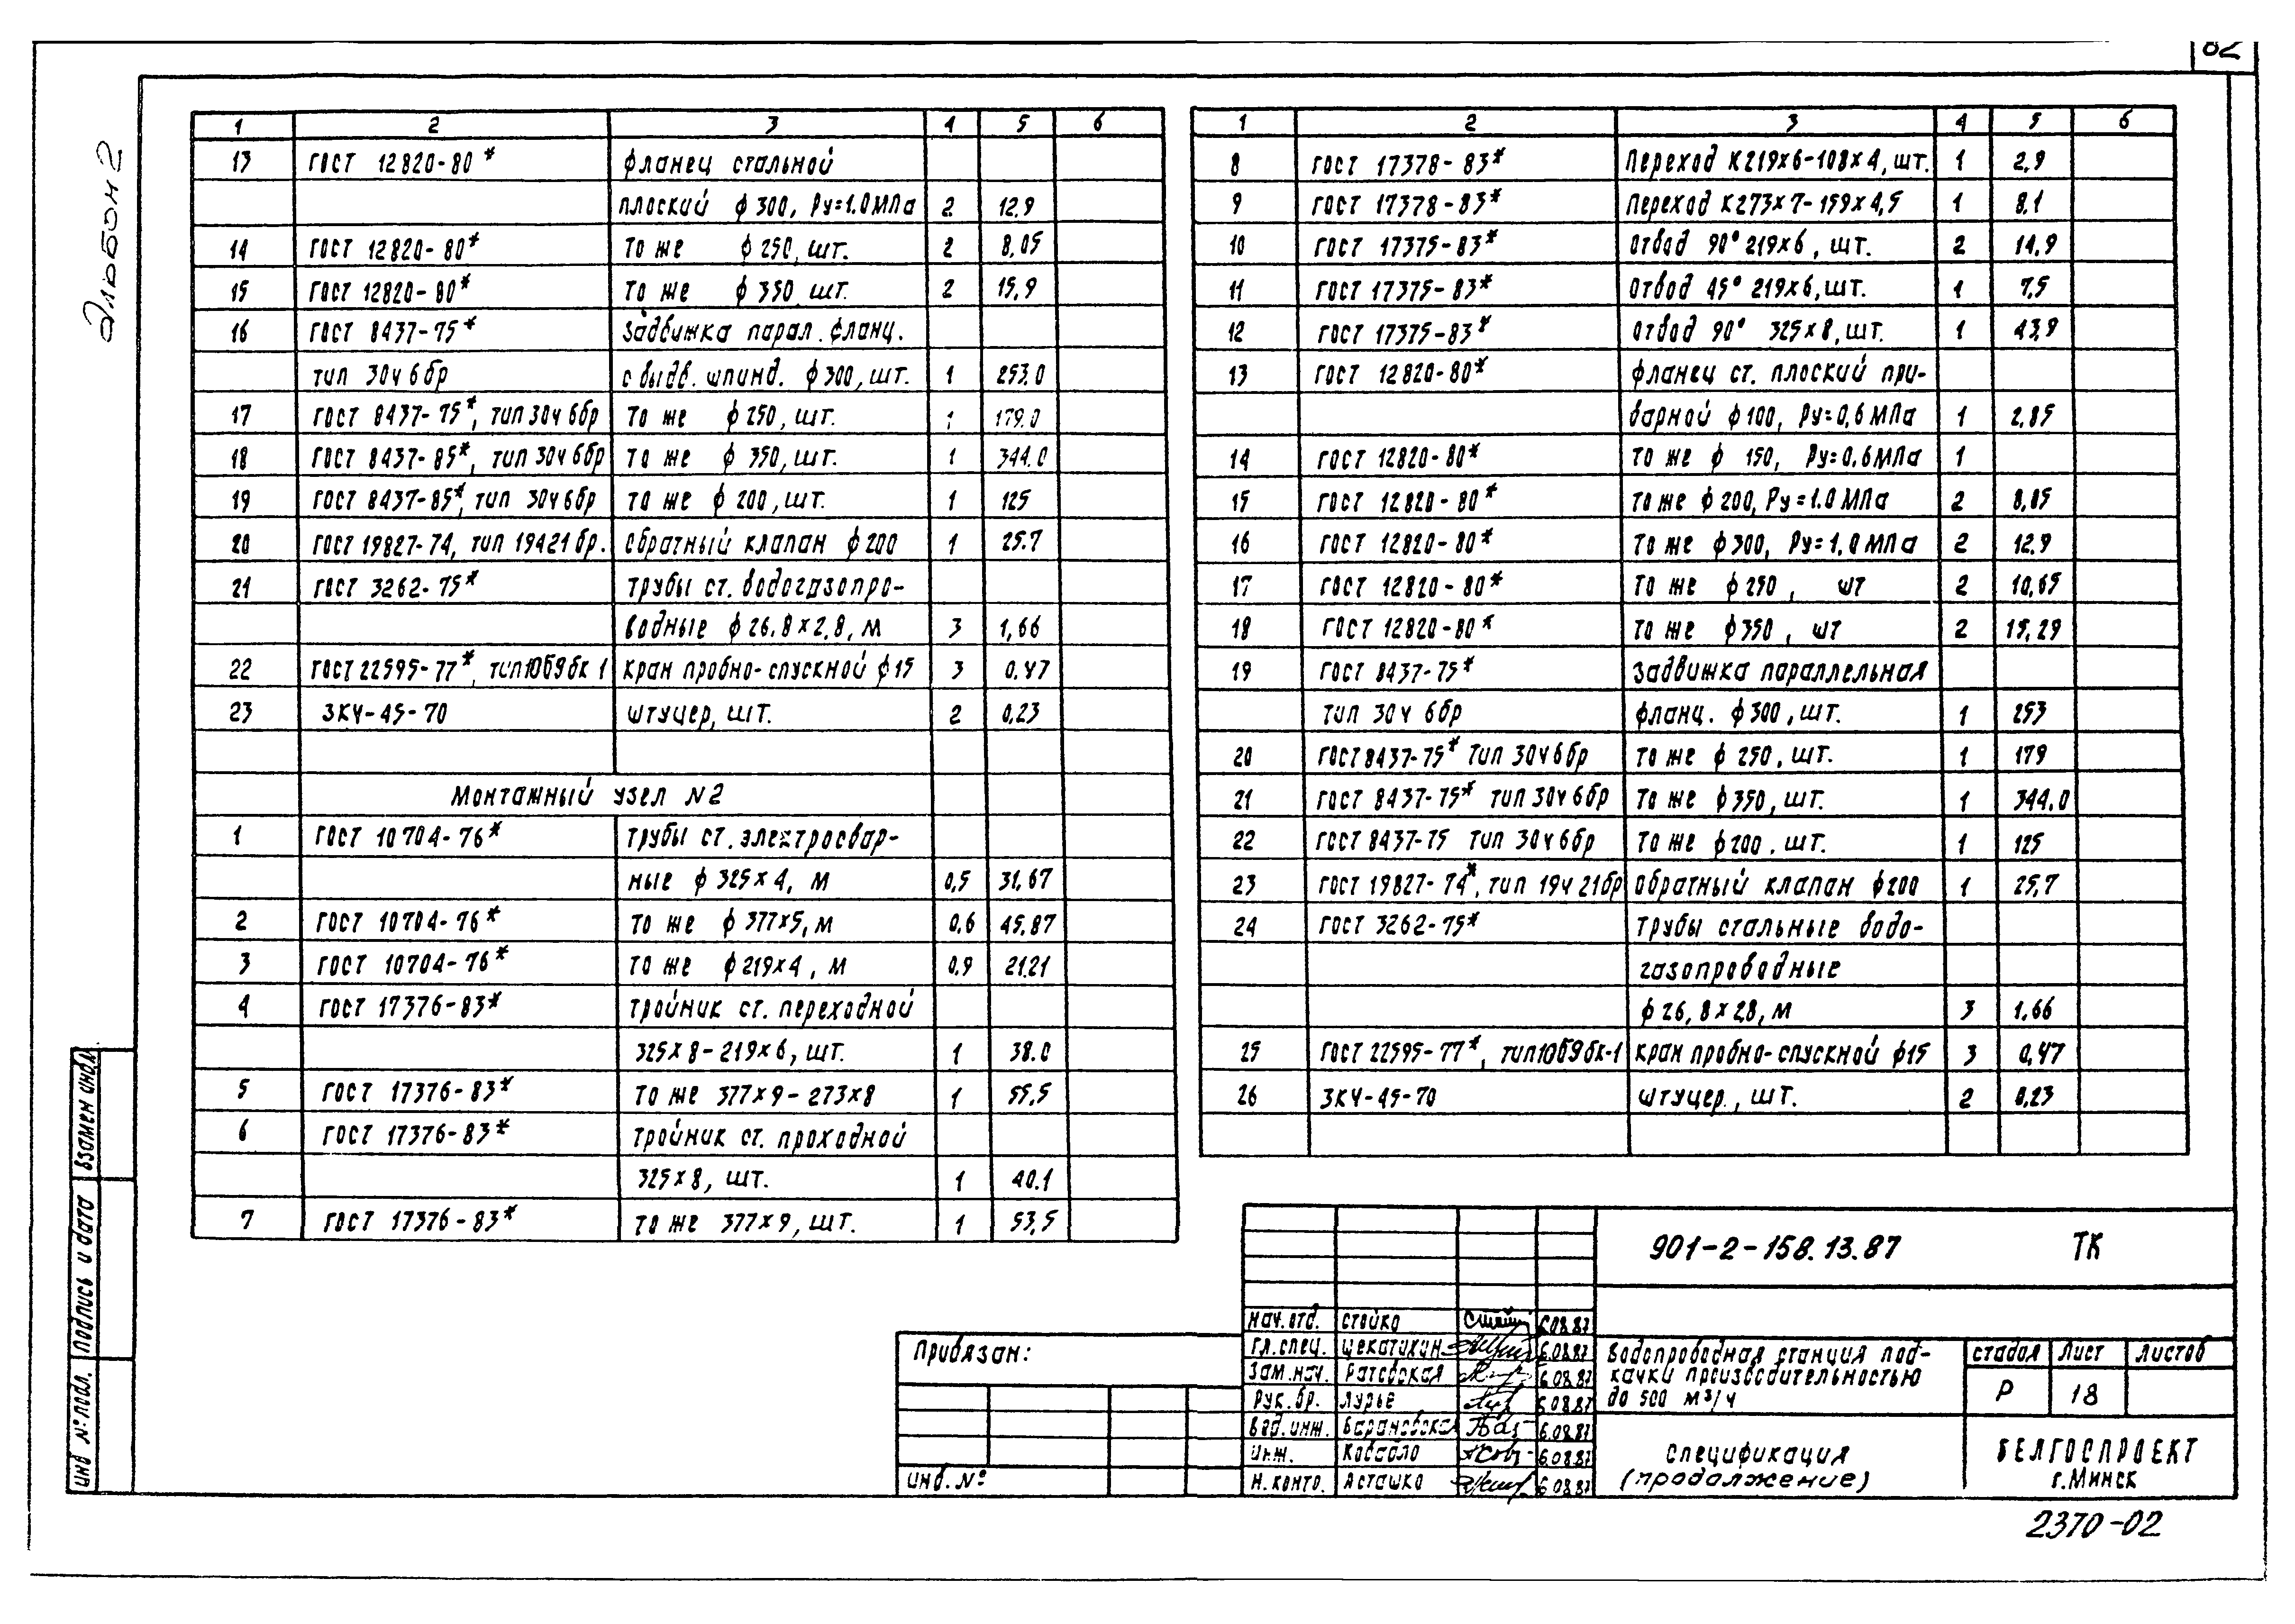 82
Альбом 2
1 2 3 4 5 6
13 ГОСТ 12820-80* Фланец стальной
плоский ф 300, Ру=1.0МПа 2 12.9
14 ГОСТ 12820-80* То же ф 250, шт. 2 8,05
15 ГОСТ 12820-80* То же ф 350 шт. 2 15,9
16 ГОСТ 8437-75* Задвижка парал. фланц.
тип 30ч 6бр с выдв. шпинд. ф 300, шт. 1 253.0
17 ГОСТ 8437-75*, тип 30ч 6бр То же ф 250, шт. 1 179.0
18 ГОСТ 8437-85*, тип 30ч 6бр То же ф 350, шт. 1 344.0
19 ГОСТ 8437-85*, тип 30ч 6бр То же ф 200, шт. 1 125
20 ГОСТ 19827-74, тип 19421бр. Обратный клапан ф 200 1 25.7
21 ГОСТ 3262-75* Трубы ст. водогазопро-
водные ф 26.8×2,8, м 3 1,66
22 ГОСТ 22595-77*, тип10б9бк 1 Кран пробно-спускной ф 15 3 0,47
23 ЗКЧ-45-70 Штуцер, шт. 2 0,23
Монтажный узел N2
1 ГОСТ 10704-76* Трубы ст. электросвар-
ные ф 325×4, м 0,5 31,67
2 ГОСТ 10704-76* То же ф 377×5, м 0,6 45,87
3 ГОСТ 10704-76* То же ф 219×4, м 0,9 21.21
4 ГОСТ 17376-83* Тройник ст. переходной
325×8-219×6, шт. 1 38.0
5 ГОСТ 17376-83* То же 377×9-273×8 1 55,5
6 ГОСТ 17376-83* Тройник ст. проходной
325×8, шт. 1 40.1
7 ГОСТ 17376-83* То же 377×9, шт. 1 53,5
1 2 3 4 5 6
8 ГОСТ 17378-83* Переход К219×6-108×4, шт. 1 2,9
9 ГОСТ 17378-83* Переход К273×7-159×4,5 1 8.1
10 ГОСТ 17375-83* Отвод 90° 219×6, шт. 2 14,9
11 ГОСТ 17375-83* Отвод 45° 219×6, шт. 1 7,5
12 ГОСТ 17375-83* Отвод 90° 325×8, шт. 1 43,9
13 ГОСТ 12820-80* Фланец ст. плоский при-
варной ф 100, Ру=0,6 МПа 1 2,85
14 ГОСТ 12820-80* То же ф 150, Ру=0.6МПа 1
15 ГОСТ 12820-80* То же ф 200, Ру=1.0 МПа 2 8,05
16 ГОСТ 12820-80* То же ф 300, Ру=1,0 МПа 2 12.9
17 ГОСТ 12820-80* То же ф 250, шт 2 10,65
18 ГОСТ 12820-80* То же ф 350, шт 2 15,29
19 ГОСТ 8437-75* Задвижка параллельная
тип 30ч 6бр фланц. ф 300, шт. 1 253
20 ГОСТ 8437-75* тип 30ч6бр То же ф 250, шт. 1 179
21 ГОСТ 8437-75* тип 30ч 6бр То же ф 350, шт. 1 344.0
22 ГОСТ 8437-75 тип 30ч 6бр То же ф 200, шт. 1 125
23 ГОСТ 19827-74*, тип 19ч 21бр Обратный клапан ф 200 1 25,7
24 ГОСТ 3262-75* Трубы стальные водо-
газопроводные
ф 26,8×2,8, м 3 1,66
25 ГОСТ 22595-77*, тип10б9бк-1 Кран пробно-спускной ф15 3 0,47
26 ЗКЧ-45-70 Штуцер, шт. 2 0,23
901-2-158.13.87 ТК
Нач. отд. Стойко 6.08.87
Гл. спец. Щекатихин 6.08.87
Зам. нач. Ратовская 6.08.87
Рук. бр. Лурье 6.08.87
Вед. инж. Барановская 6.08.87
Инж. Ковалло 6.08.87
Н. контр. Асташко 6.08.87
Водопроводная станция под-
качки производительностью
до 500 м³/ч
Стадия Лист Листов
Р 18
Спецификация
(продолжение)
БЕЛГОСПРОЕКТ
г. Минск
Привязан:
Инв. №
Взамен инв.
Подпись и дата
Инв № подл.
2370-02